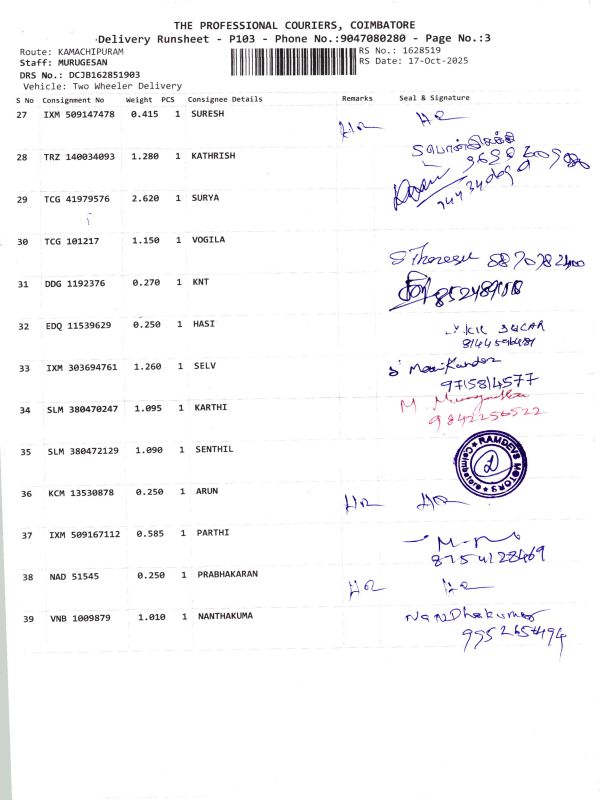 THE PROFESSIONAL COURIERS, COIMBATORE
Delivery Runsheet - P103 - Phone No.:9047080280 - Page No.:3
Route: KAMACHIPURAM
RS No.: 1628519
Staff: MURUGESAN
RS Date: 17-Oct-2025
DRS No.: DCJB162851903
Vehicle: Two Wheeler Delivery
S No Consignment No Weight PCS Consignee Details Remarks Seal & Signature
27 IXM 509147478 0.415 1 SURESH
28 TRZ 140034093 1.280 1 KATHRISH
29 TCG 41979576 2.620 1 SURYA
30 TCG 101217 1.150 1 VOGILA
31 DDG 1192376 0.270 1 KNT
32 EDQ 11539629 0.250 1 HASI
33 IXM 303694761 1.260 1 SELV
9715814577
34 SLM 380470247 1.095 1 KARTHI
9842256522
35 SLM 380472129 1.090 1 SENTHIL
RAMDEVS MOTORS
Coimbatore
36 KCM 13530878 0.250 1 ARUN
37 IXM 509167112 0.585 1 PARTHI
8754128469
38 NAD 51545 0.250 1 PRABHAKARAN
39 VNB 1009879 1.010 1 NANTHAKUMA
NanDhakumar